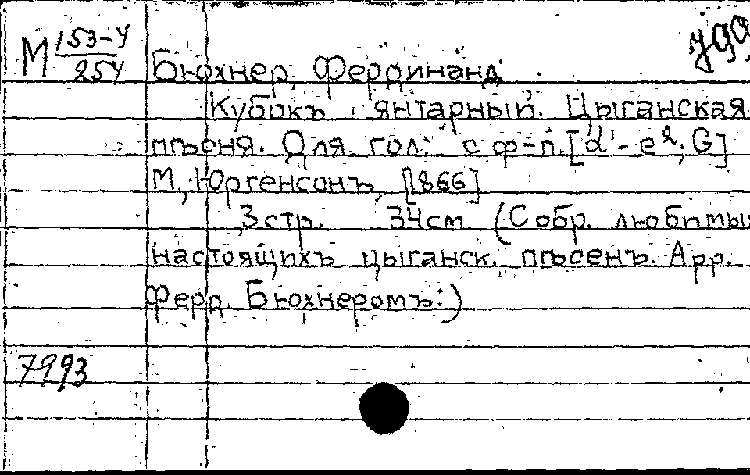 М 153-4/254
Бюхнер, Фердинанд
Кубокъ янтарный. Цыганская
пѣсня. Для гол. с ф-п. [d'-e²; G]
М., Юргенсонъ, [1866]
3 стр. 34см (Собр. любимых
настоящихъ цыганск. пѣсенъ. Арр.
Ферд. Бюхнеромъ:)
7993